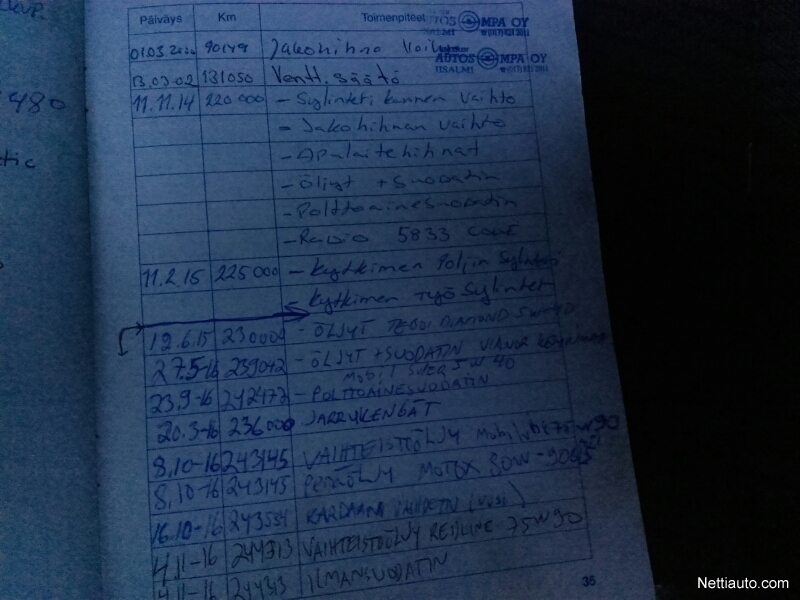 480
Päiväys Km Toimenpiteet
AUTOS MPA OY
IISALMI
01.03 90149 Jakohihna
AUTOS MPA OY
IISALMI
13.03.02 131050 Ventt. säätö
11.11.14 220 000 - Sylinteri kannen vaihto
- Jakohihnan vaihto
- Apulaitehihnat
- Öljyt + suodatin
- Polttoainesuodatin
- Radio 5833 code
11.2.15 225000 - Kytkimen Sylinteri
- Kytkimen työ Sylinteri
12.6.15 230000 - ÖLJYT DIAMOND 5W40
27.5-16 239042 - ÖLJYT + SUODATIN
5W40
23.9-16 242477 - POLTTOAINESUODATIN
20.3-16 236000 JARRUKENGÄT
8.10-16 243145 VAIHTEISTOÖLJY
8.10-16 243145 PERÄÖLJY MOTOX 80W-90
16.10-16 243554 KARDAANI
4.11-16 244313 VAIHTEISTOÖLJY REDLINE 75W90
4.11-16 244313 ILMANSUODATIN
35
Nettiauto.com